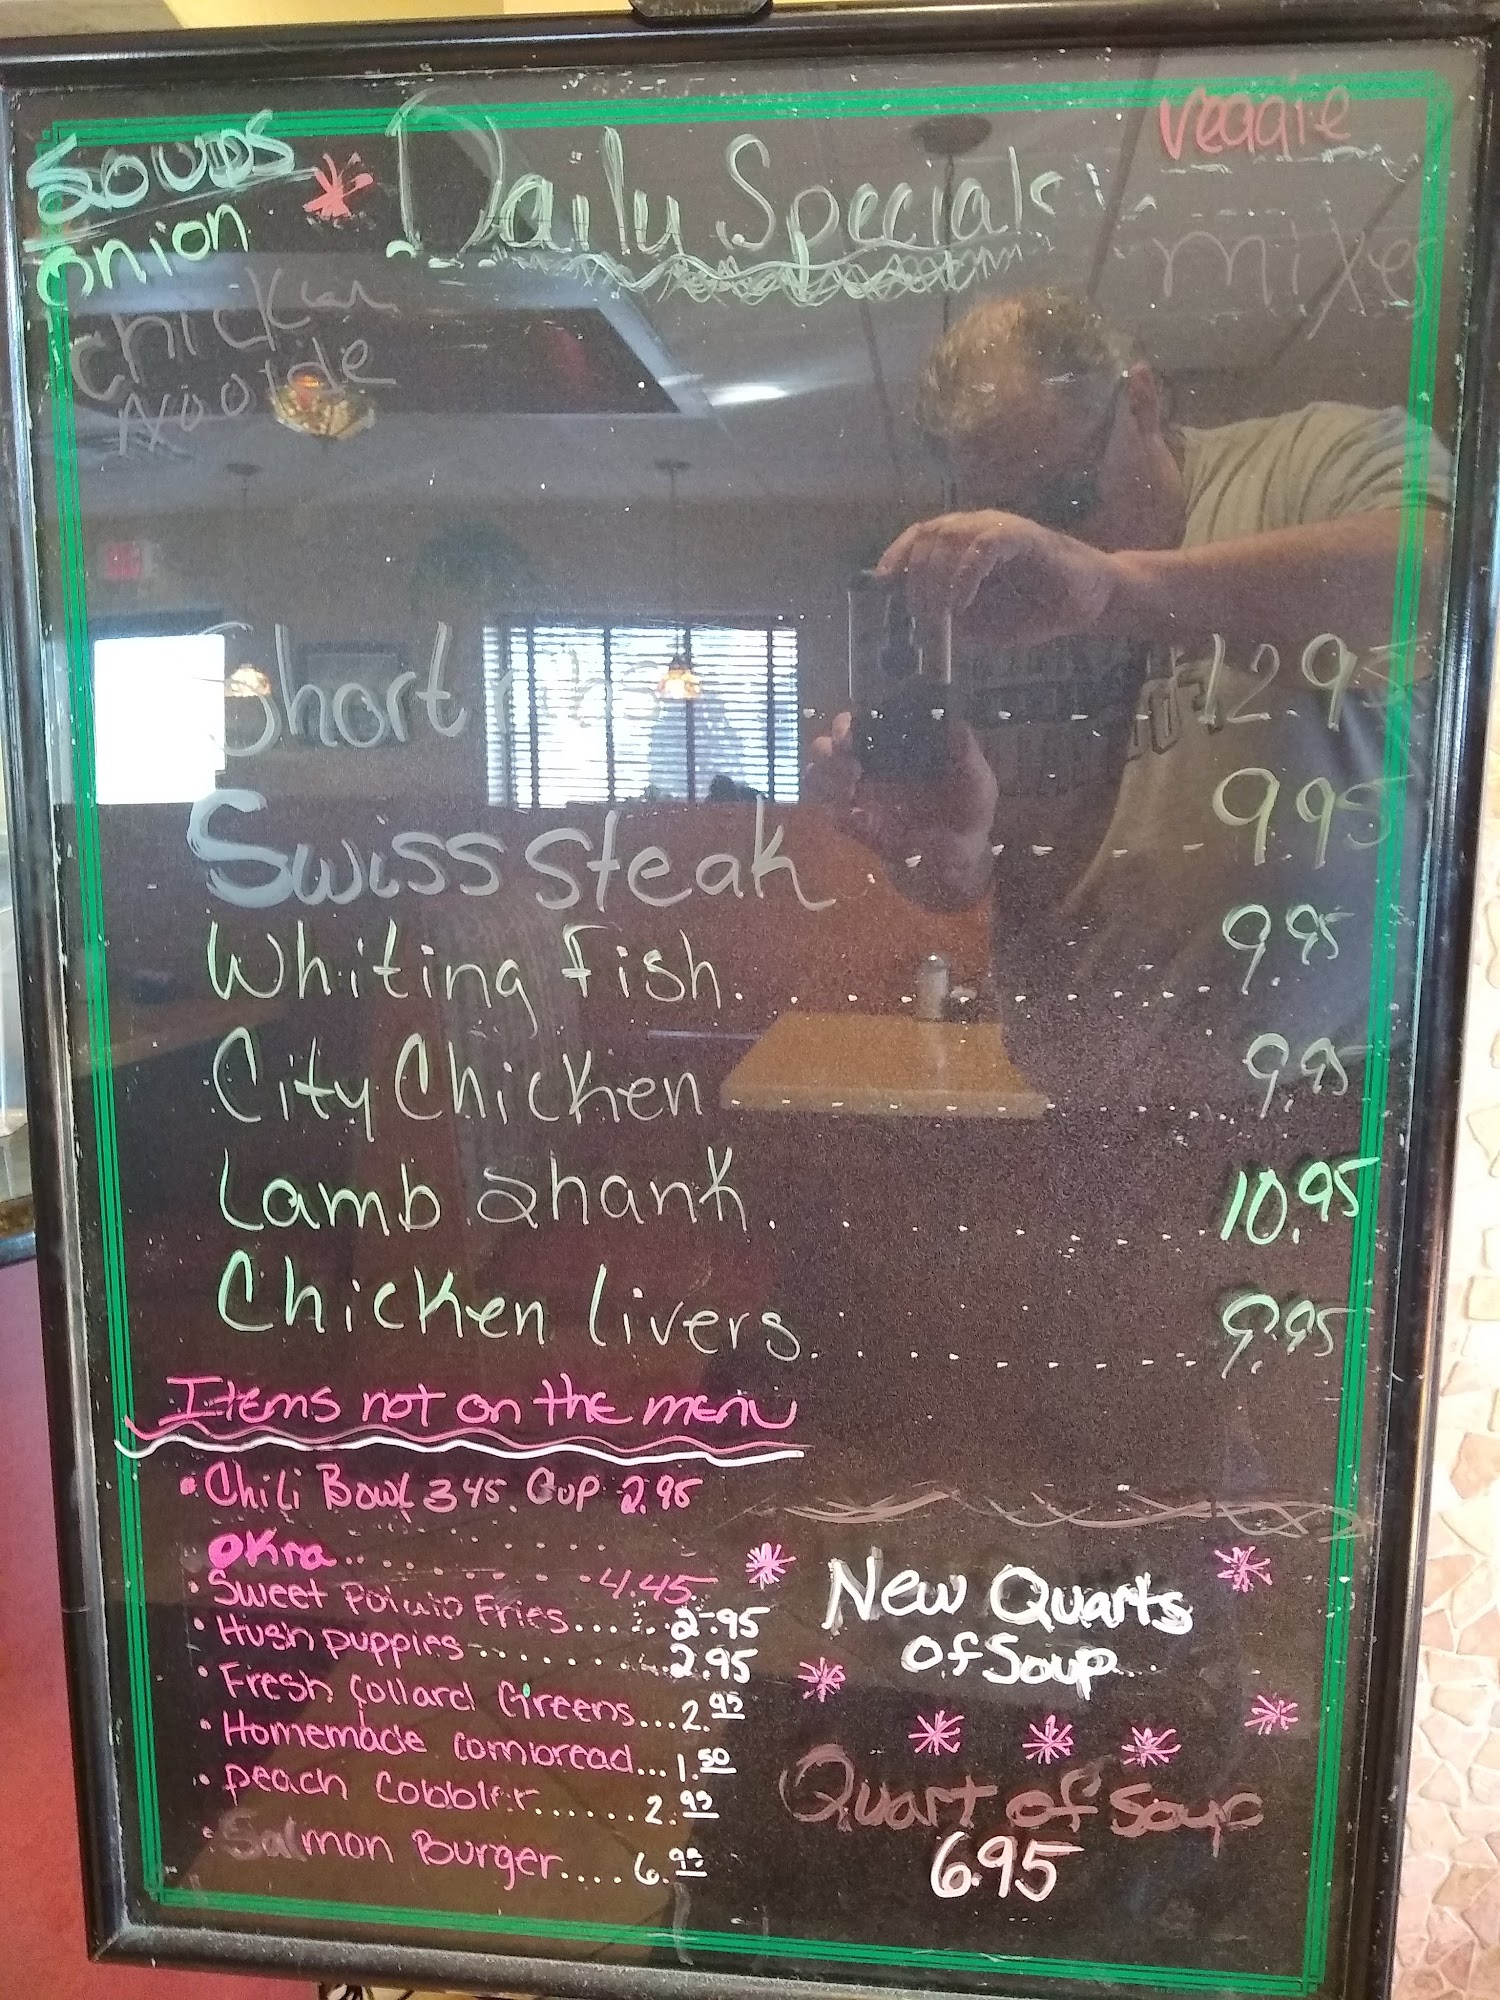 Soups
onion
chicken
Noolde
Daily Specials
Veggie
mixed
Short ribs 12.95
Swiss Steak 9.95
Whiting Fish 9.95
City Chicken 9.95
Lamb Shank 10.95
Chicken livers 9.95
Items not on the menu
• Chili Bowl 3.45. Cup 2.95
OKra 4.45
• Sweet Potato Fries 2.95
• Hush puppies 2.95
• Fresh Collard Greens 2.95
• Homemade cornbread 1.50
• peach Cobbler 2.95
• Salmon Burger 6.95
New Quarts
of Soup
Quart of Soup
6.95